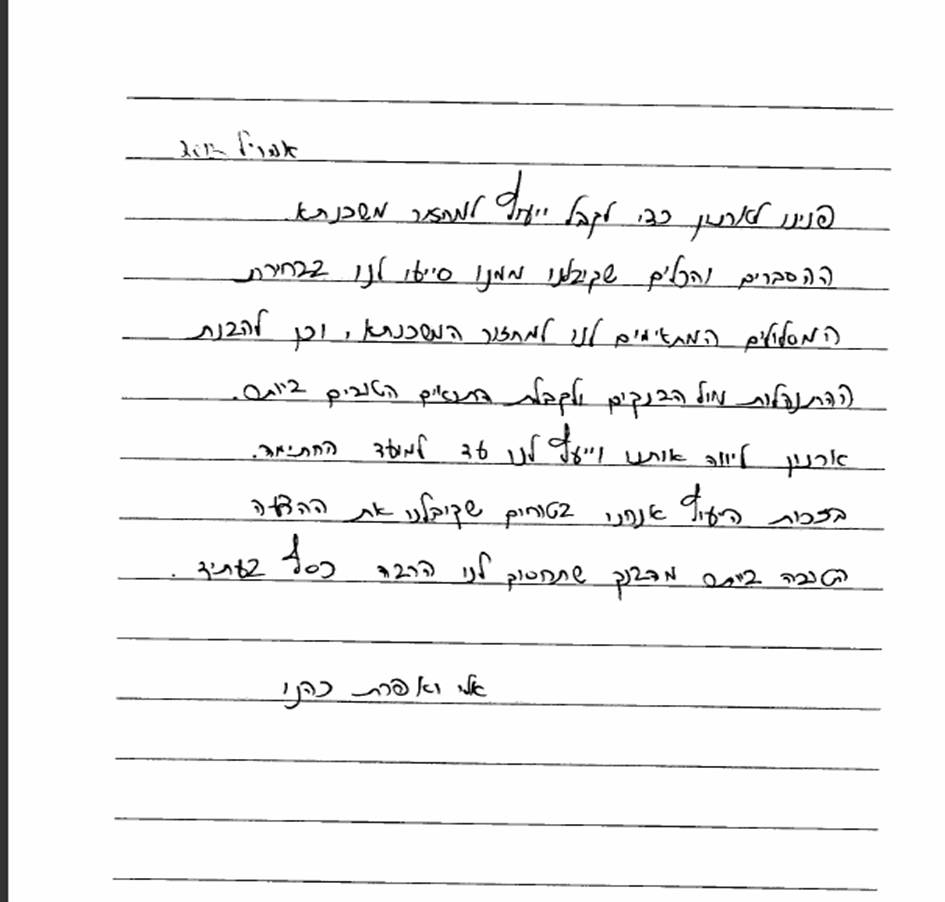 אפריל
פנינו לארנון כדי לקבל ייעוץ למחזור משכנתא
ההסברים והכלים שקיבלנו ממנו סייעו לנו בבחירת
המסלולים המתאימים לנו למחזור המשכנתא, וכן להבנת
ההתנהלות מול הבנקים ולקבלת התנאים הטובים ביותר.
ארנון ליווה אותנו וייעץ לנו עד למועד החתימה.
בזכות הייעוץ אנחנו בטוחים שקיבלנו את ההצעה
הטובה ביותר מהבנק שתחסוך לנו הרבה כסף בעתיד.
אלי ואפרת כהני